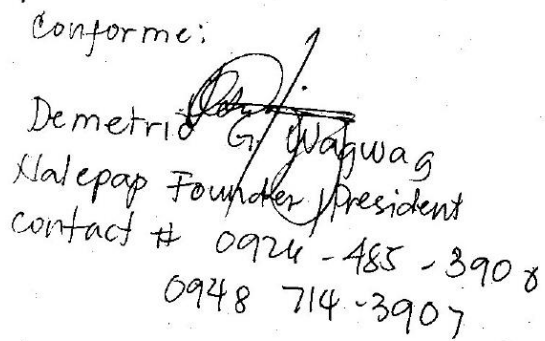 Conforme:
Demetrio G. Wagwag
Nalepap Founder/President
contact # 0924-485-3908
0948 714-3907